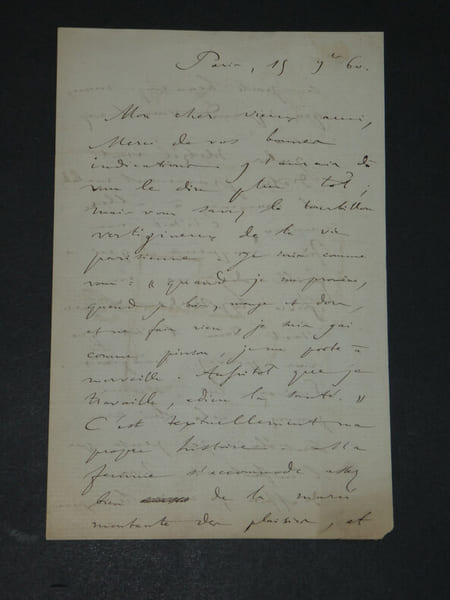 Paris, 15 9bre 60.
Mon cher vieux ami,
Merci de vos bonnes
indications. J'aurais dû
vous le dire plus tôt,
mais vous savez le tourbillon
vertigineux de la vie
parisienne. Je suis comme
vous : « quand je me promène,
quand je bois, mange et dors,
et ne fais rien, je suis gai
comme pinson, je me porte à
merveille. Aussitôt que je
travaille, adieu la santé. »
C'est textuellement ma
propre histoire. Ma
femme s'accommode assez
bien de la marée
montante des plaisirs, et